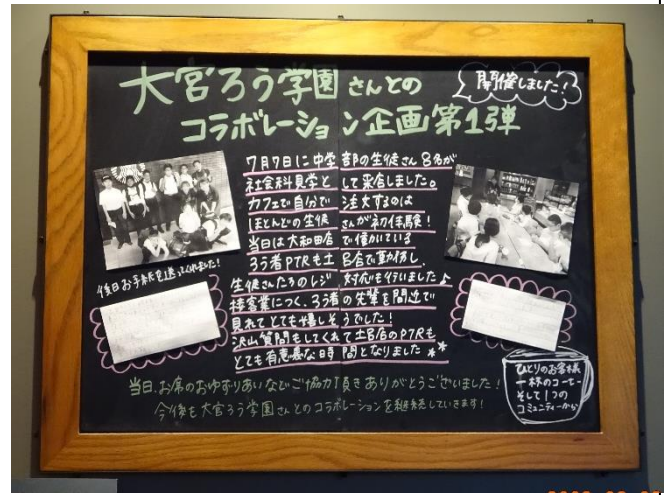 大宮ろう学園さんとの
開催しました!
コラボレーション企画第1弾
7月7日に中学部の生徒さん8名が
社会科見学として来店しました。
カフェで自分で注文するのは
ほとんどの生徒さんが初体験!
当日は大和田店で働いている
ろう者PTRも土呂店で勤務し、
生徒さんたちのレジ対応も行いました♪
接客業につく、ろう者の先輩を間近で
見れてとても嬉しそうでした!
沢山質問もしてくれて土呂店のPTRも
とても有意義な時間となりました**
後日お手紙を送ってくれました!
当日、お席のおゆずりあいなどご協力頂きありがとうございました!
今後も大宮ろう学園さんとのコラボレーションを継続していきます!
ひとりのお客様
一杯のコーヒー
そして1つの
コミュニティーから